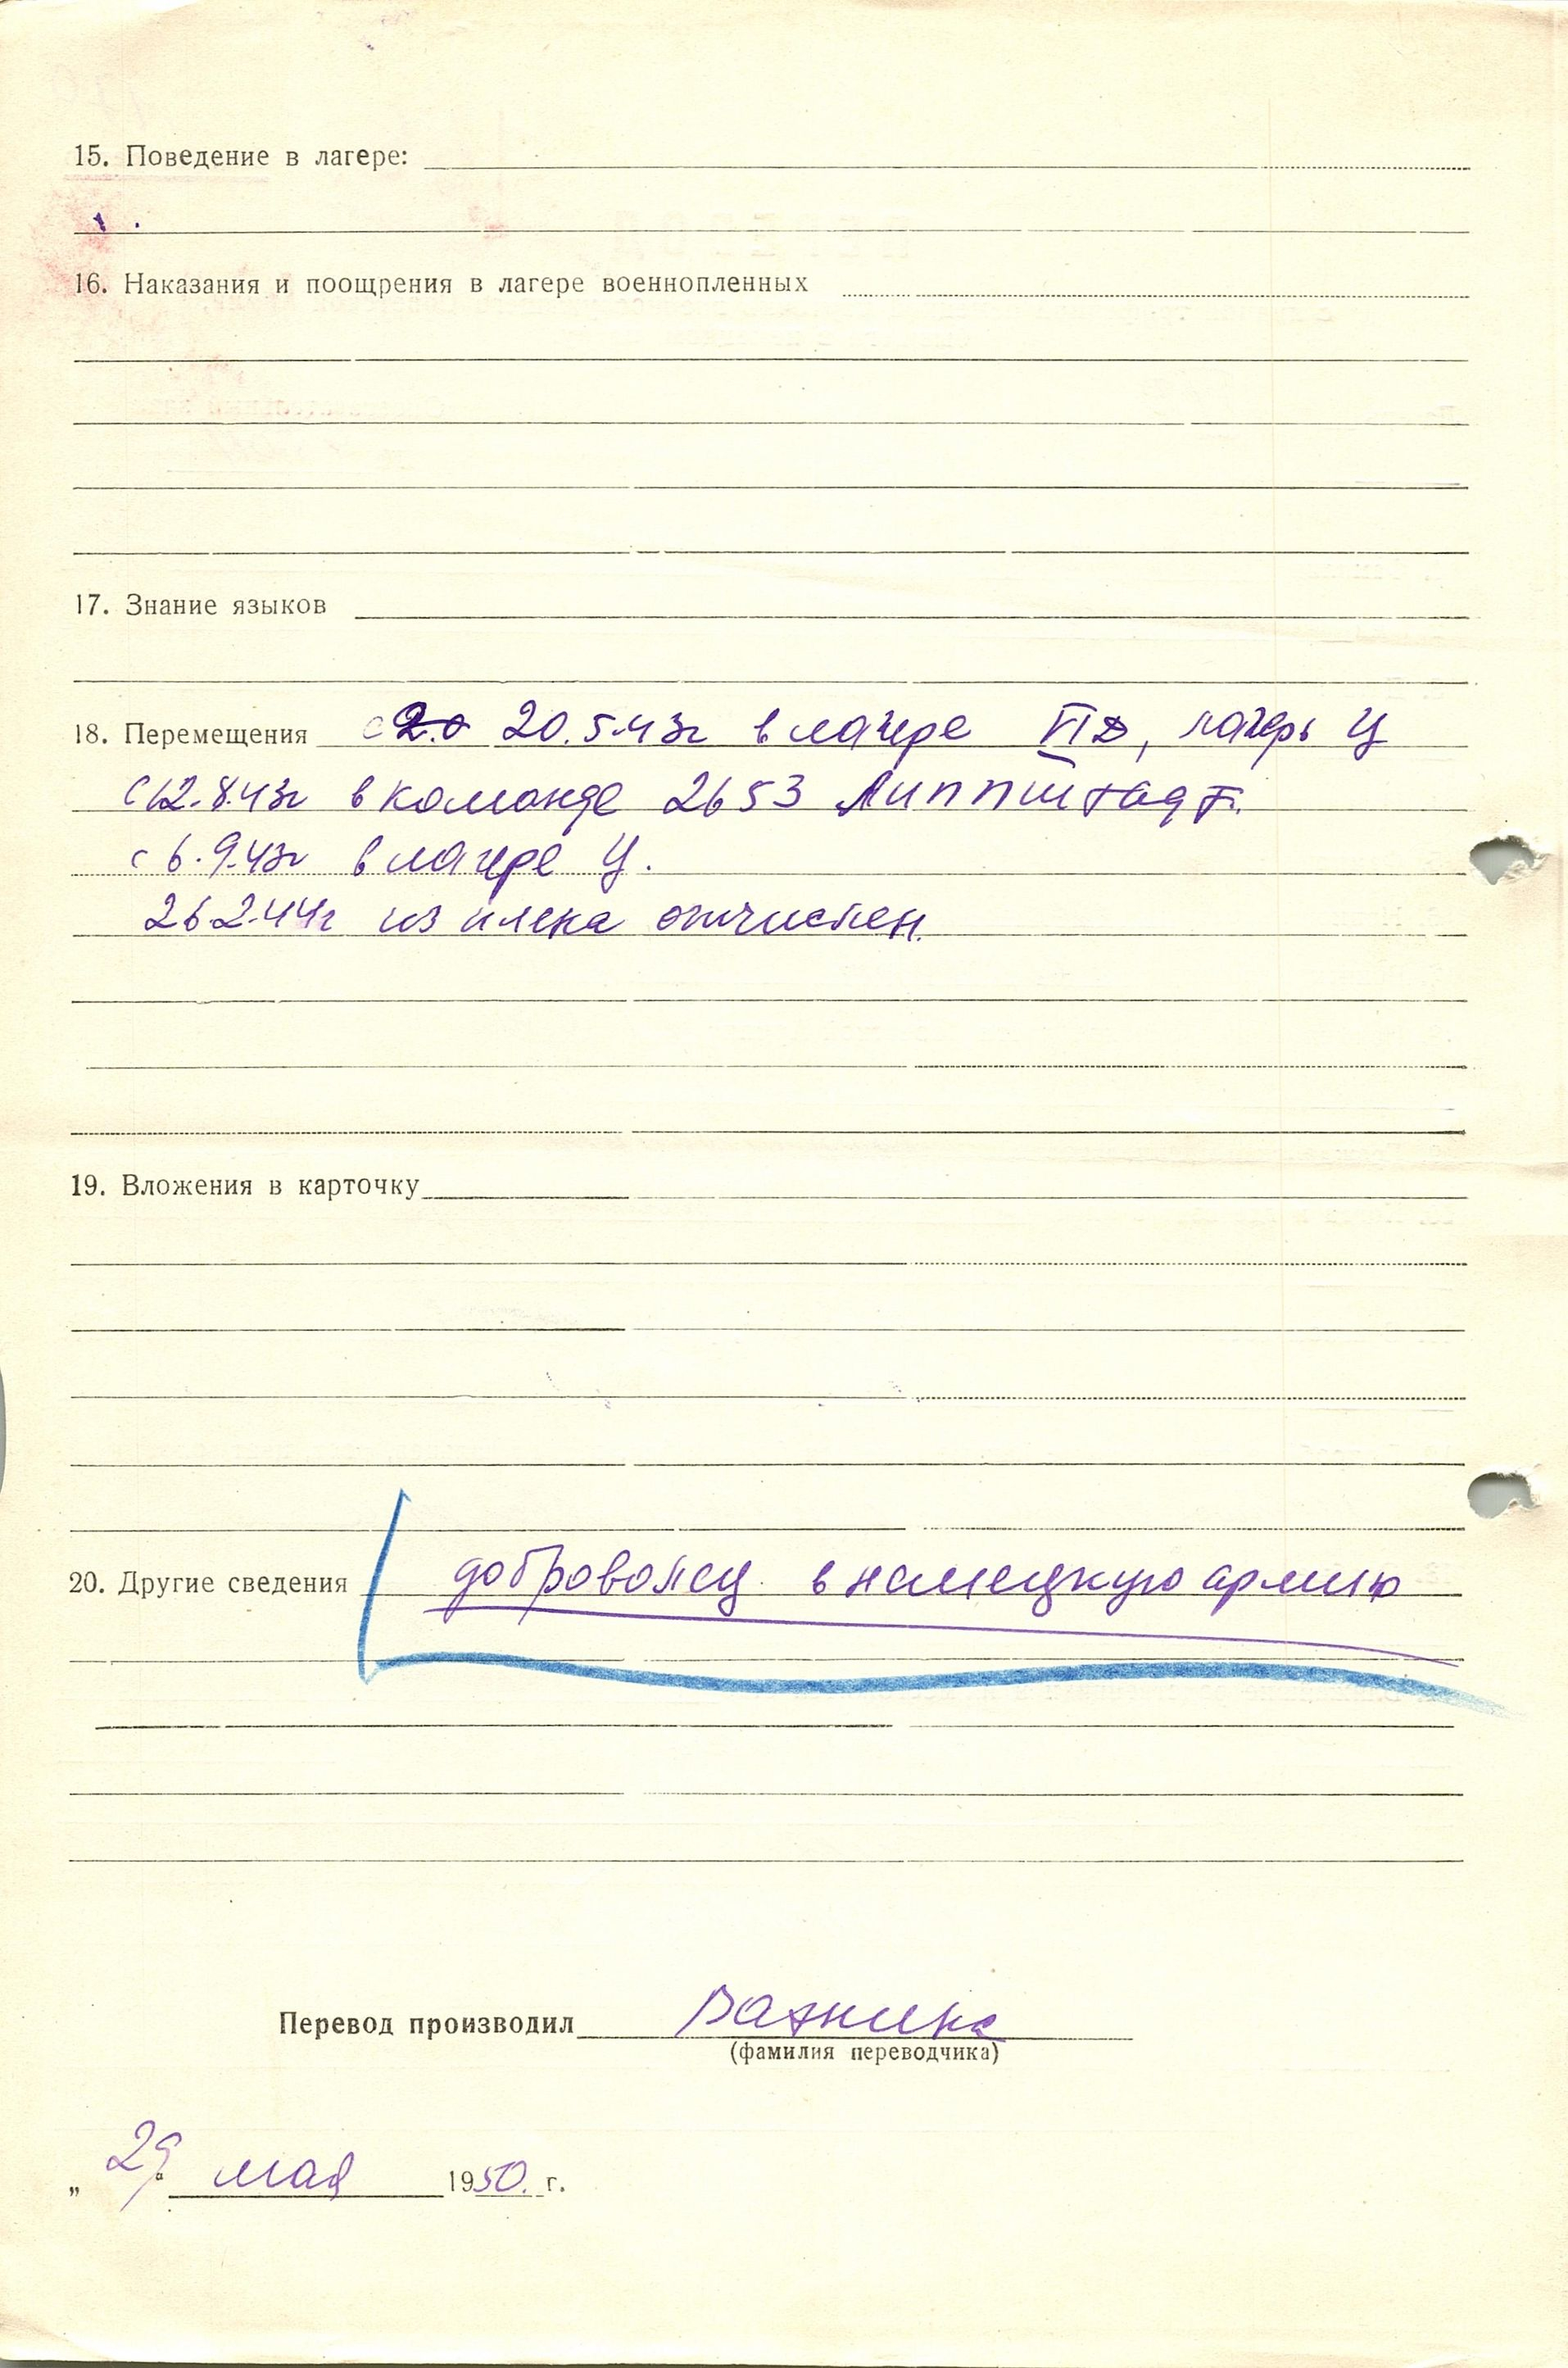 15. Поведение в лагере:
16. Наказания и поощрения в лагере военнопленных
17. Знание языков
18. Перемещения с 20.5.43г в лагере VI Д, лагерь Ц
с 12.8.43г в команде 2653 Липпштадт.
с 6.9.43г в лагере Ц.
26.2.44г из плена отчислен.
19. Вложения в карточку
20. Другие сведения доброволец в немецкую армию
Перевод производил
(фамилия переводчика)
„ 29 “ мая 1950. г.